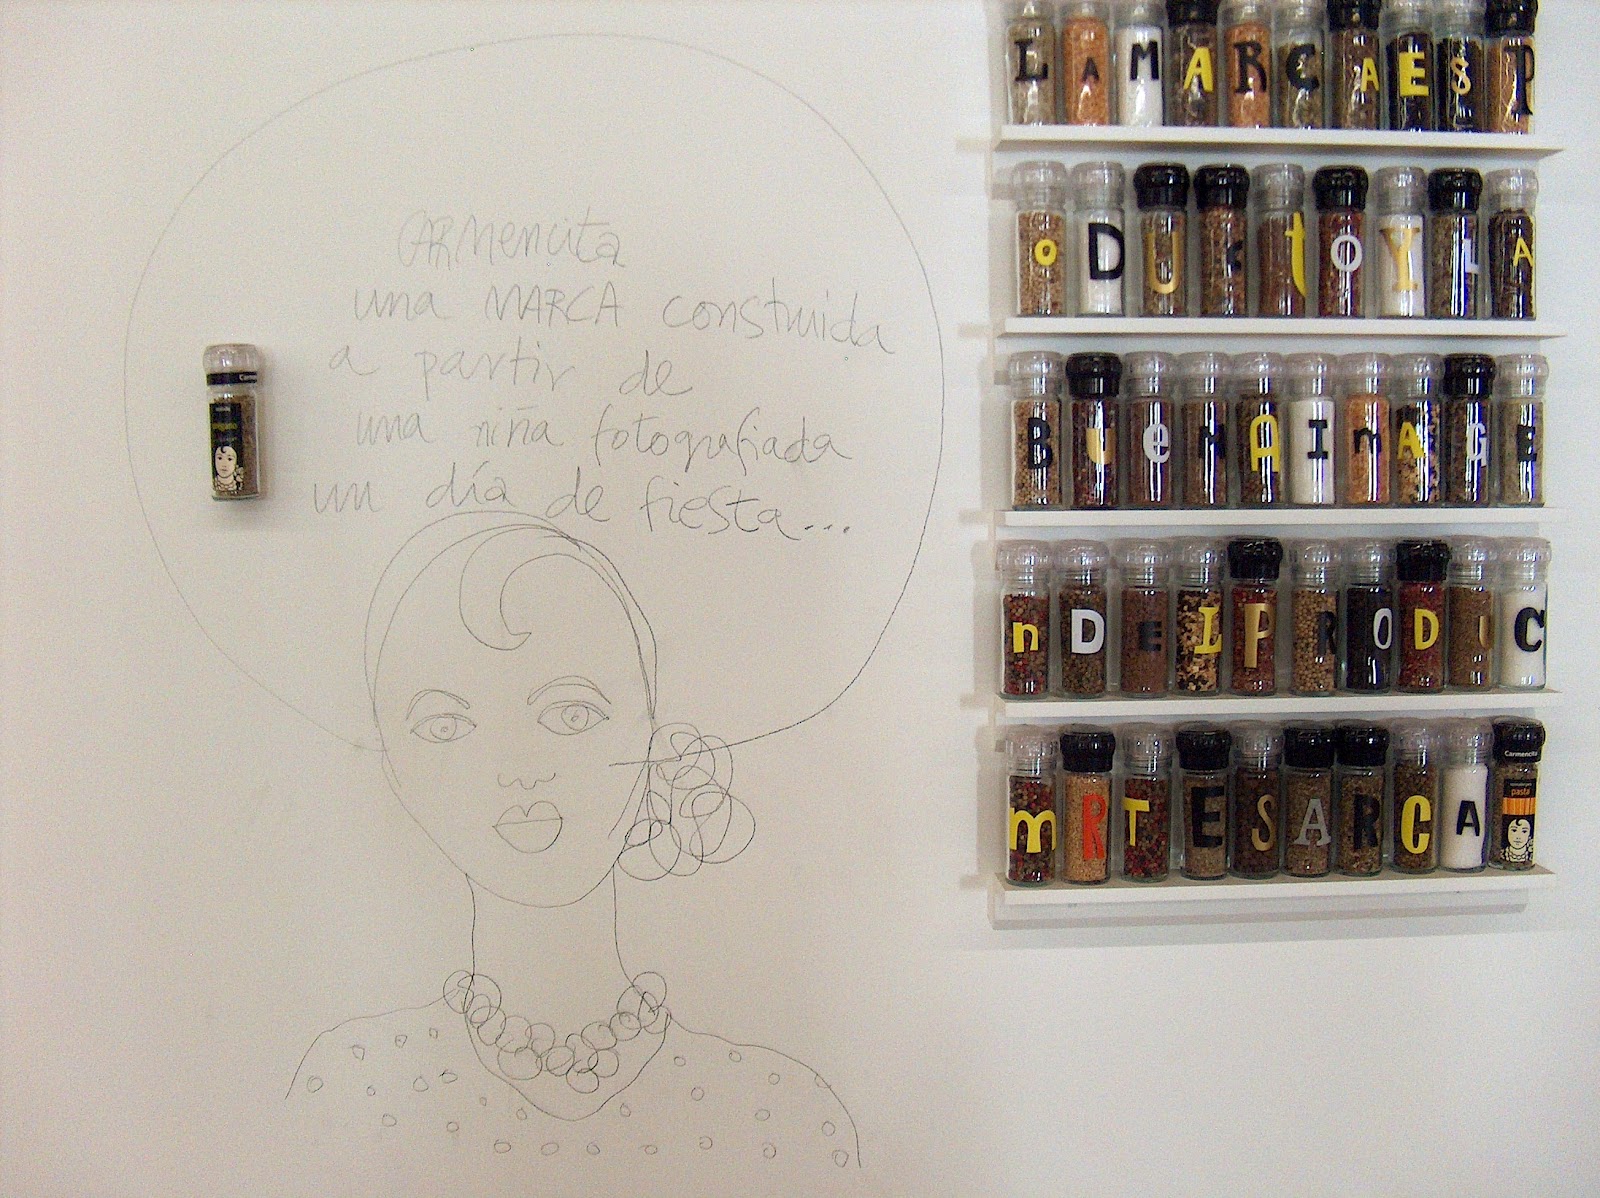 CARMencita
una MARCA construida
a partir de
una niña fotografiada
un día de fiesta...
LAMARCAESP
oDUctoYLA
BUeNAImAGE
nDELPRODUC
mRTESARCA
Carmencita
pasta